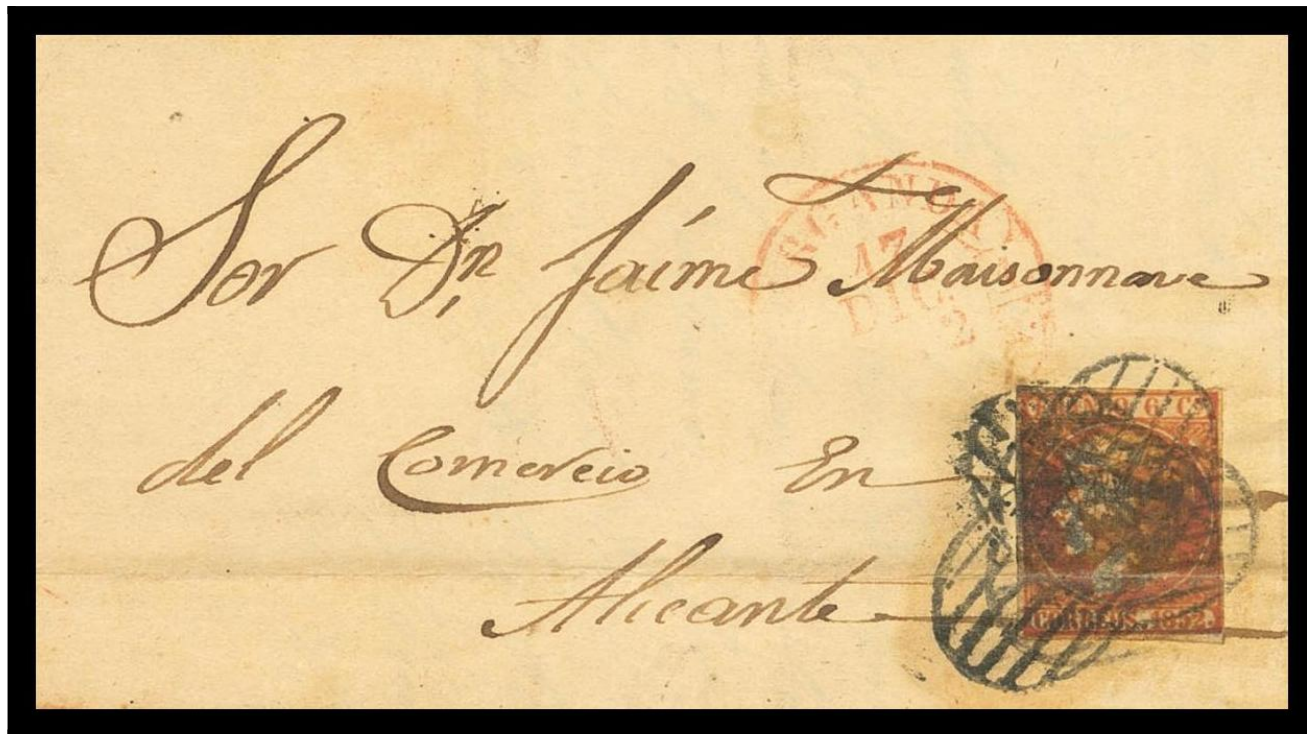 Sor Dn Jaime Maisonnave
17
DIC
2
del Comercio En
Alicante
6 Cs
CORREOS. 1852.